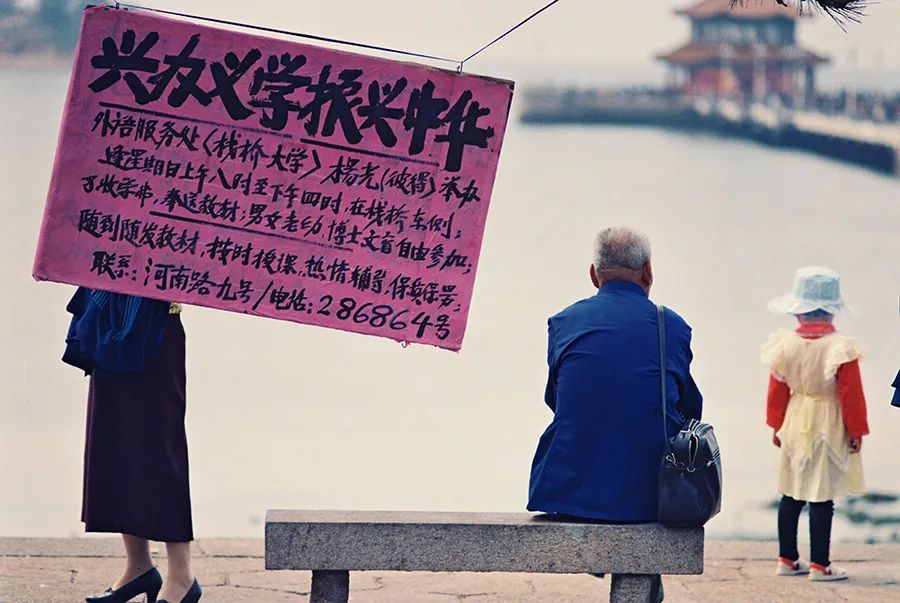 兴办义学振兴中华
外语服务处〈栈桥大学〉杨光(彼得)举办
逢星期日上午八时至下午四时,在栈桥东侧;
不收学费,奉送教材;男女老幼,博士文盲自由参加;
随到随发教材,按时授课,热情辅导,保质保量;
联系:河南路九号/电话:286864号